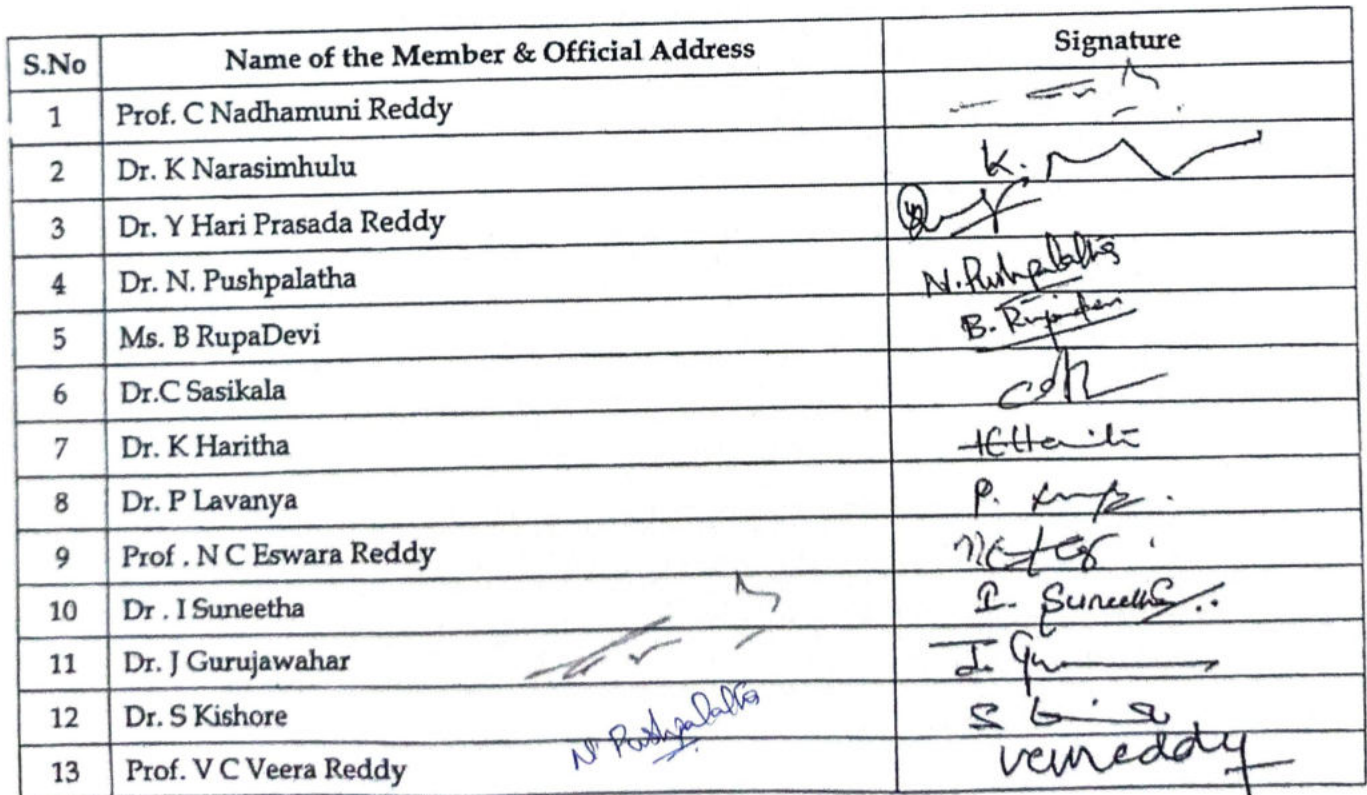 S.No Name of the Member & Official Address Signature
1 Prof. C Nadhamuni Reddy
2 Dr. K Narasimhulu K.
3 Dr. Y Hari Prasada Reddy
4 Dr. N. Pushpalatha N. Pushpalatha
5 Ms. B RupaDevi B. Rupadevi
6 Dr.C Sasikala
7 Dr. K Haritha
8 Dr. P Lavanya P.
9 Prof . N C Eswara Reddy
10 Dr . I Suneetha I. Suneetha
11 Dr. J Gurujawahar J.
12 Dr. S Kishore N Pushpalatha S
13 Prof. V C Veera Reddy